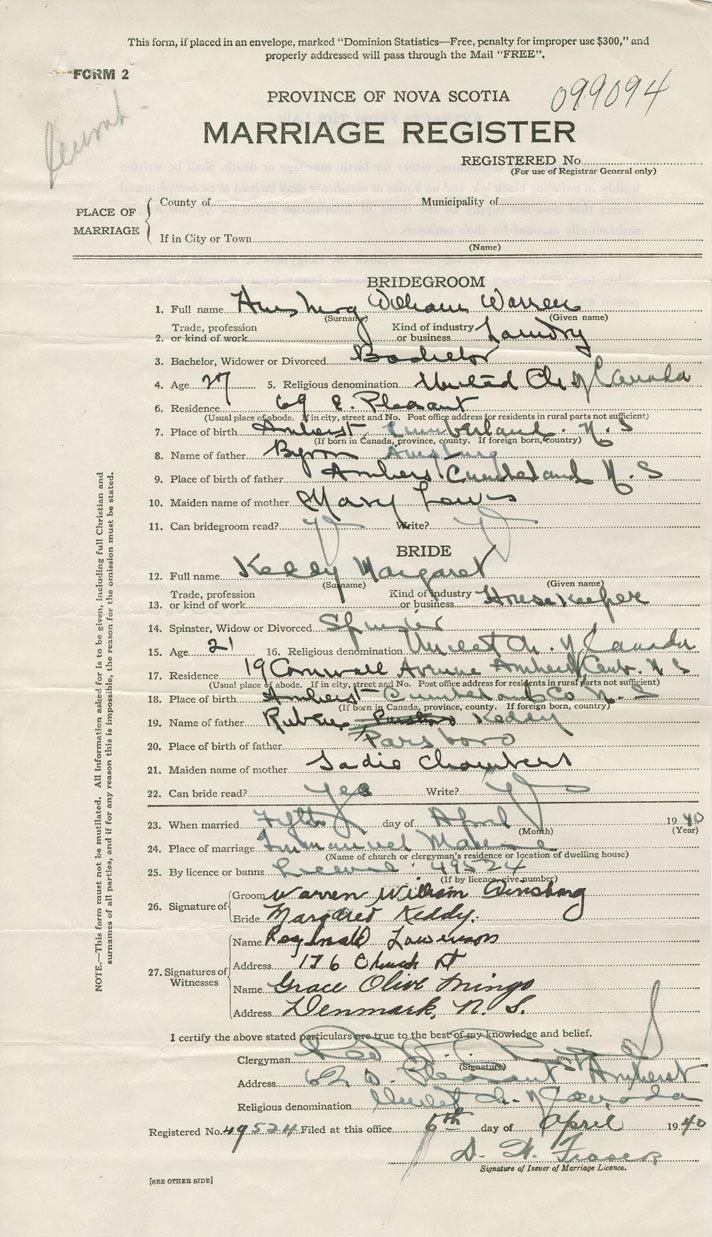 This form, if placed in an envelope, marked "Dominion Statistics—Free, penalty for improper use $300," and
properly addressed will pass through the Mail "FREE".
FORM 2
099094
PROVINCE OF NOVA SCOTIA
MARRIAGE REGISTER
REGISTERED No.
(For use of Registrar General only)
PLACE OF MARRIAGE
County of Municipality of
If in City or Town
(Name)
BRIDEGROOM
1. Full name William Warren
(Surname) (Given name)
2. Trade, profession or kind of work Kind of industry or business Laundry
3. Bachelor, Widower or Divorced Bachelor
4. Age 27 5. Religious denomination United Ch. of Canada
6. Residence 69 E. Pleasant
(Usual place of abode. If in city, street and No. Post office address for residents in rural parts not sufficient)
7. Place of birth Amherst Cumberland N.S
(If born in Canada, province, county. If foreign born, country)
8. Name of father Byron
9. Place of birth of father Amherst Cumberland N.S
10. Maiden name of mother Mary Lewis
11. Can bridegroom read? Write?
BRIDE
12. Full name Keddy Margaret
(Surname) (Given name)
13. Trade, profession or kind of work Kind of industry or business Housekeeper
14. Spinster, Widow or Divorced Spinster
15. Age 21 16. Religious denomination United Ch. of Canada
17. Residence 19 Cornwall Avenue Amherst Cumb. N S
(Usual place of abode. If in city, street and No. Post office address for residents in rural parts not sufficient)
18. Place of birth Amherst Cumberland Co. N. S
(If born in Canada, province, county. If foreign born, country)
19. Name of father Keddy
20. Place of birth of father Parsboro
21. Maiden name of mother Sadie Chambers
22. Can bride read? Yes Write?
23. When married Fifth day of April 1940
(Month) (Year)
24. Place of marriage Immanuel
(Name of church or clergyman's residence or location of dwelling house)
25. By licence or banns License 49524
(If by licence, give number)
26. Signature of
Groom Warren William
Bride Margaret Keddy.
27. Signatures of Witnesses
Name Reginald
Address 176 Church St
Name Grace Olive Mingo
Address Denmark, N. S.
I certify the above stated particulars are true to the best of my knowledge and belief.
Clergyman
(Signature)
Address Pleasant Amherst
Religious denomination United Ch. of Canada
Registered No. 49524 Filed at this office 6th day of April 1940
D. W. Fraser
Signature of Issuer of Marriage Licence.
[SEE OTHER SIDE]
NOTE.—This form must not be mutilated. All information asked for is to be given, including full Christian and
surnames of all parties, and if for any reason this is impossible, the reason for the omission must be stated.